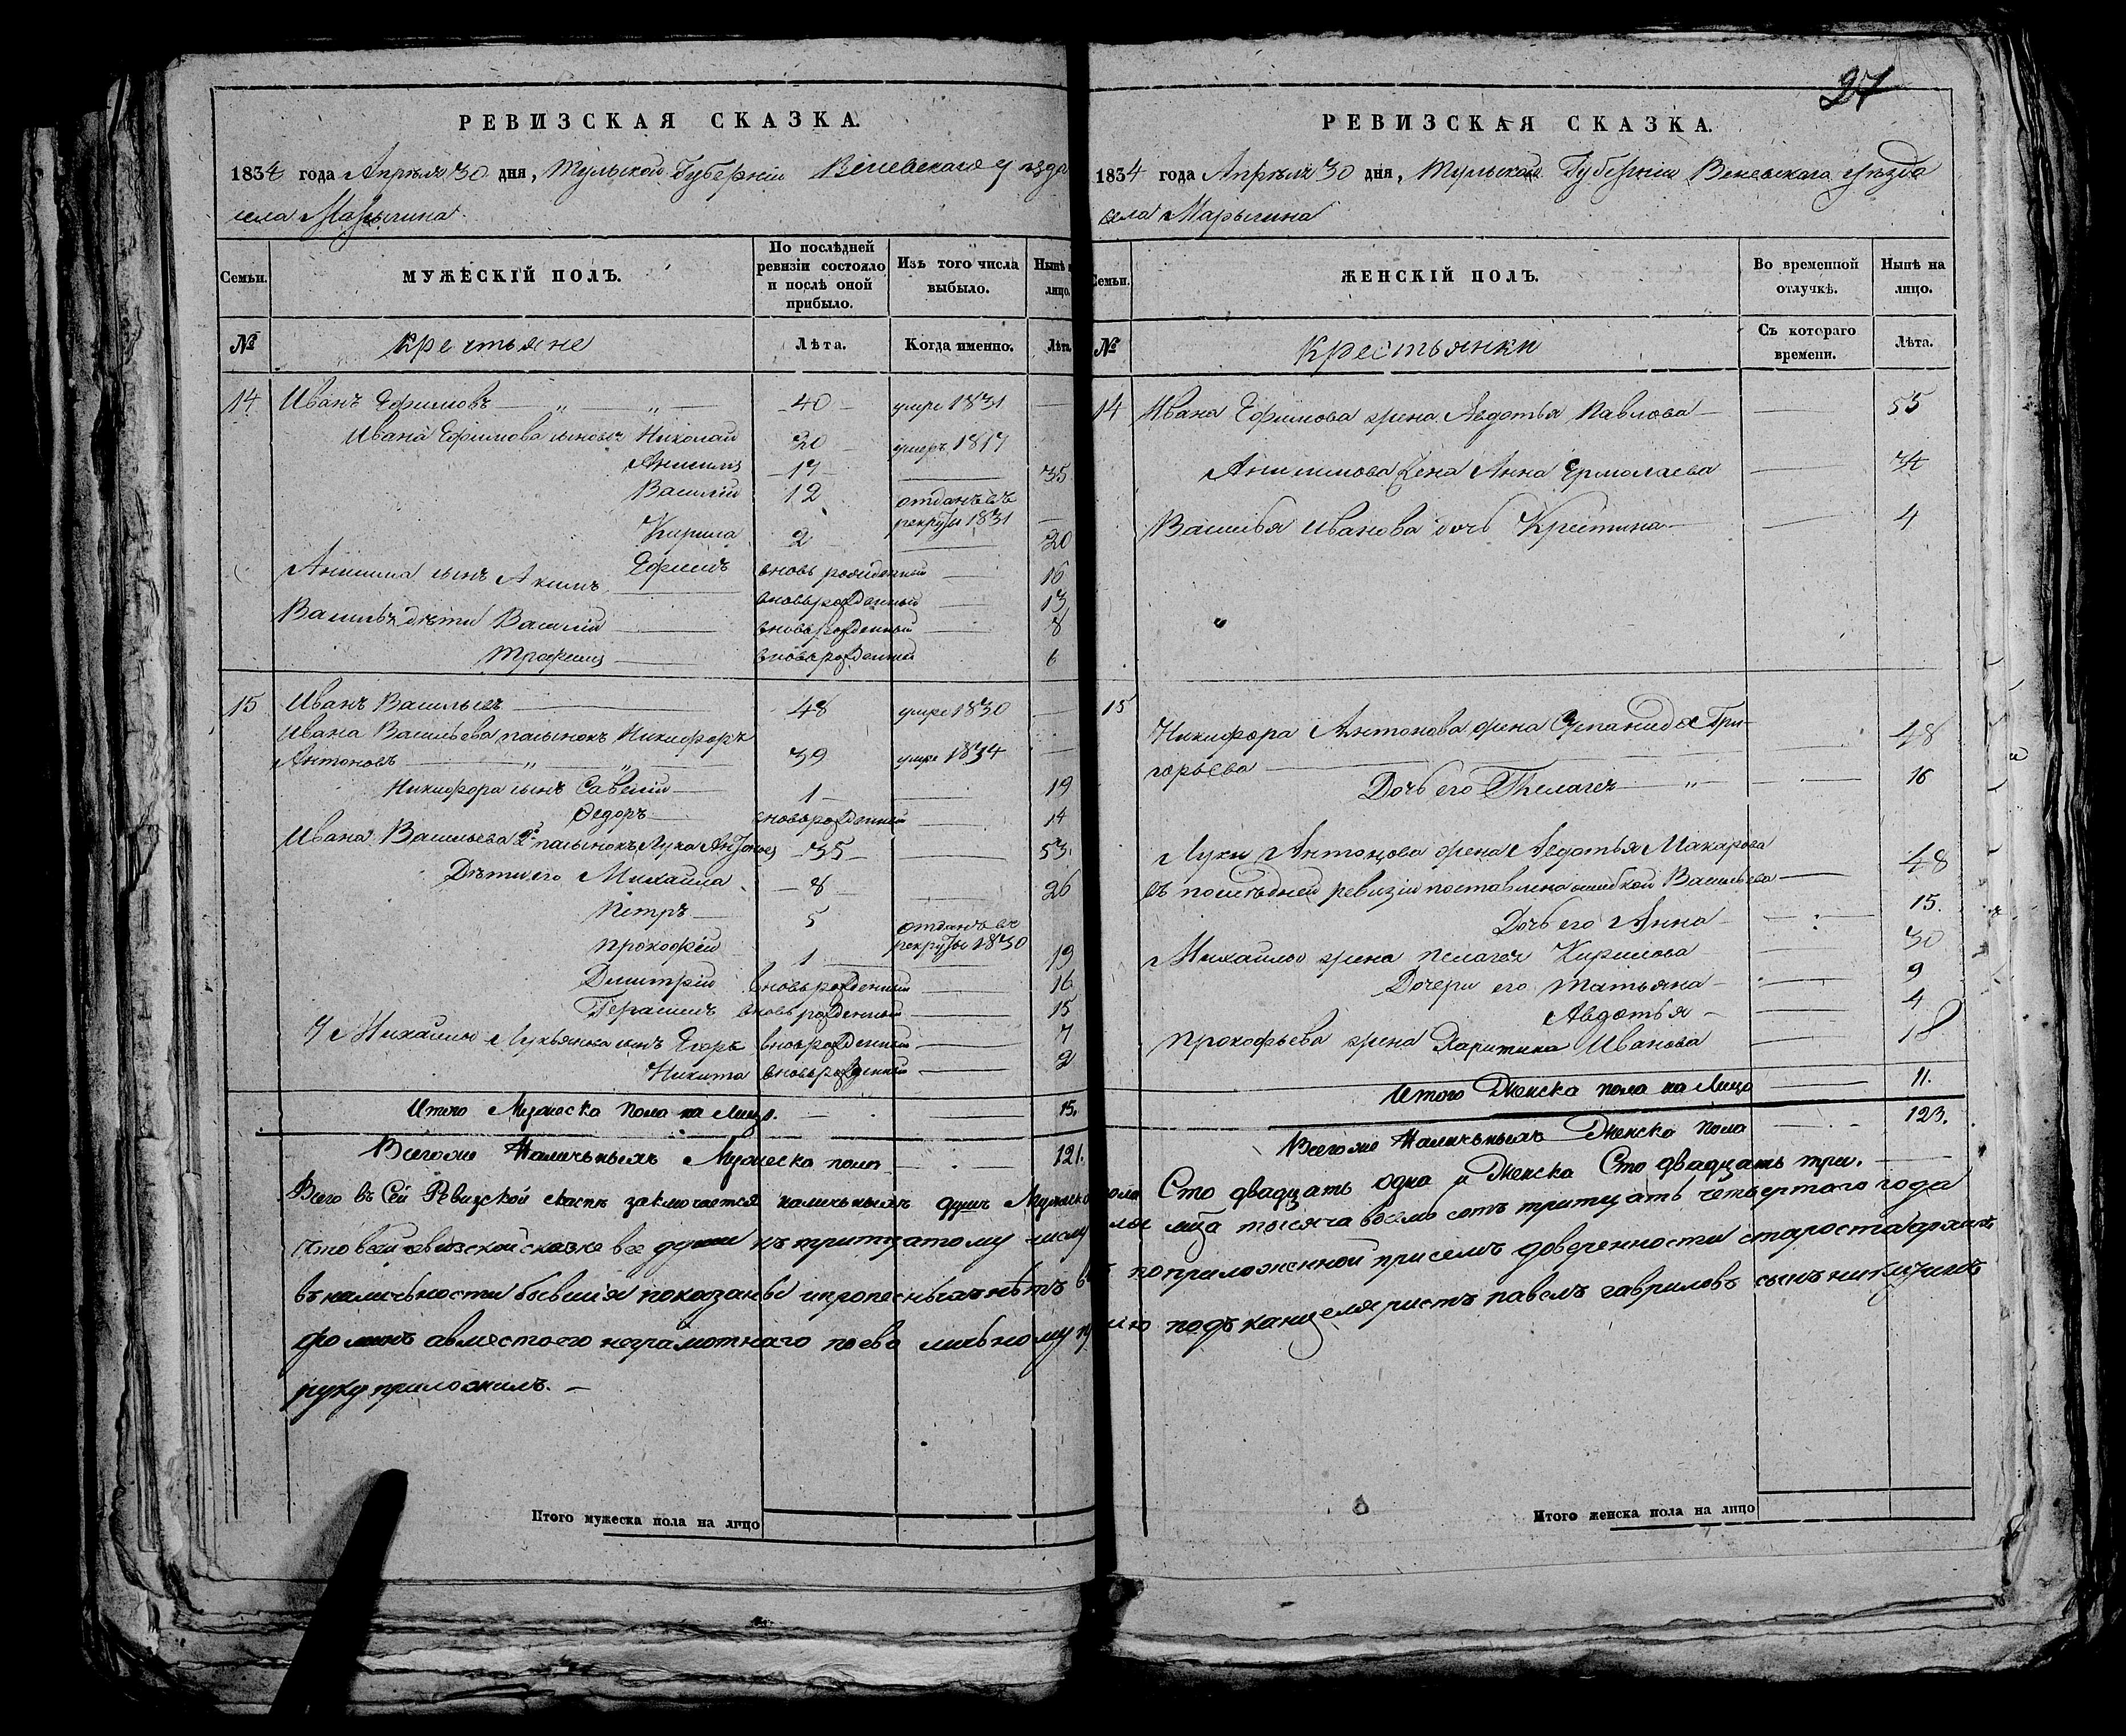 27
РЕВИЗСКАЯ СКАЗКА.
1834 года Апреля 30 дня, Тульской Губерніи Веневскаго уезда
села Марыгина
Семьи. МУЖЕСКІЙ ПОЛЪ. По послѣдней ревизіи состояло и послѣ оной прибыло. Изъ того числа выбыло. Нынѣ на лицо.
№ Крестьяне Лѣта. Когда именно. Лѣта.
14 Иванъ Ефимовъ 40 умре 1831
Ивана Ефимова сыновья Николай 20 умеръ 1817
Анисимъ 17 35
Василій 12 отданъ въ
рекруты 1831
Кирила 2 20
Ефимъ вновь рожденный 16
Анисима сынъ Акимъ вновьрожденный 13
Васильи дети Василій вновьрожденный 8
Трофимъ вновьрожденный 6
15 Иванъ Васильевъ 48 умре 1830
Ивана Васильева пасынокъ Никифоръ
Антоновъ 39 умре 1834
Никифора сынъ Савелій 1 19
Федоръ вновьрожденный 14
Ивана Васильева 2й пасынокъ Лука Антоновъ 35 53
Дети его Михаила 8 26
Петръ 5 отданъ въ
рекруты 1830
Прокофій 1 19
Дмитрій вновьрожденный 16
Герасимъ вновьрожденный 15
У Михайлы Лукьянова сынъ Егоръ вновьрожденный 7
Никита вновьрожденный 2
Итого Мужеска пола на Лицо. 15.
Всего же Наличныхъ Мужеска пола 121.
РЕВИЗСКАЯ СКАЗКА.
1834 года Апреля 30 дня, Тульской Губерніи Веневскаго уѣзда
села Марыгина
Семьи. ЖЕНСКІЙ ПОЛЪ. Во временной отлучкѣ. Нынѣ на лицо.
№ Крестьянки Съ котораго времени. Лѣта.
14 Ивана Ефимова жена Авдотья Павлова 55
Анисимова жена Анна Ермолаева 34
Василья Иванова дочь Крестина 4
15 Никифора Антонова жена Степанида Гри-
горьева 48
Дочь его Пелагея 16
Луки Антонова жена Авдотья Макарова
въ последней ревизіи поставлена ошибкой Васильева 48
Дочь его Анна 15.
Михайлы жена Пелагея Кирилова 30
Дочери его Татьяна 9
Авдотья 4
Прокофьева жена Харитина Иванова 18
Итого Женска пола на Лицо 11.
Всего же Наличныхъ Женска пола 123.
Всего въ Сей Ревизской сказке заключается наличныхъ душъ Мужеска пола Сто двадцать одна и Женска Сто двадцать три.
что всей ревизской сказке все души къ тритцатому числу мца тысяча восемь сотъ тритцать четвертаго года
въ наличности бывшія показаны и прописныхъ нетъ по приложенной присемъ доверенности староста
а вместо его неграмотнаго по ево личному подъканцеляристъ павелъ гавриловъ сынъ
руку приложилъ.
Итого мужеска пола на лицо
Итого женска пола на лицо